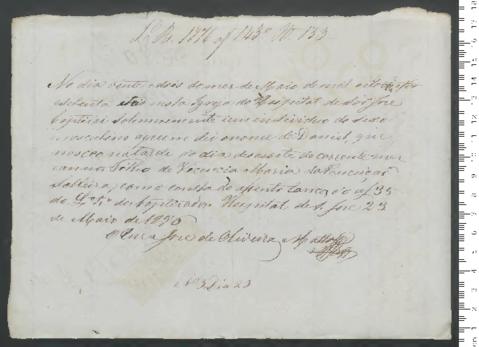 L. B. 1870 f 143 Nº 133
No dia vinte e dois do mez de Maio de mil oito centos
e setenta nesta Igreja do Hospital de São José
baptizei solemnemente um individuo do sexo
masculino a quem dei o nome de Daniel, que
nasceo na tarde do dia desasete do corrente mez
filho de Vicencia Maria da Encarnação
Solteira, como consta do assento lançado a f 35
do Lº 5º de baptizados Hospital de S. José 23
de Maio de 1870
José de Oliveira Mattos
Nº 3 Dia 23